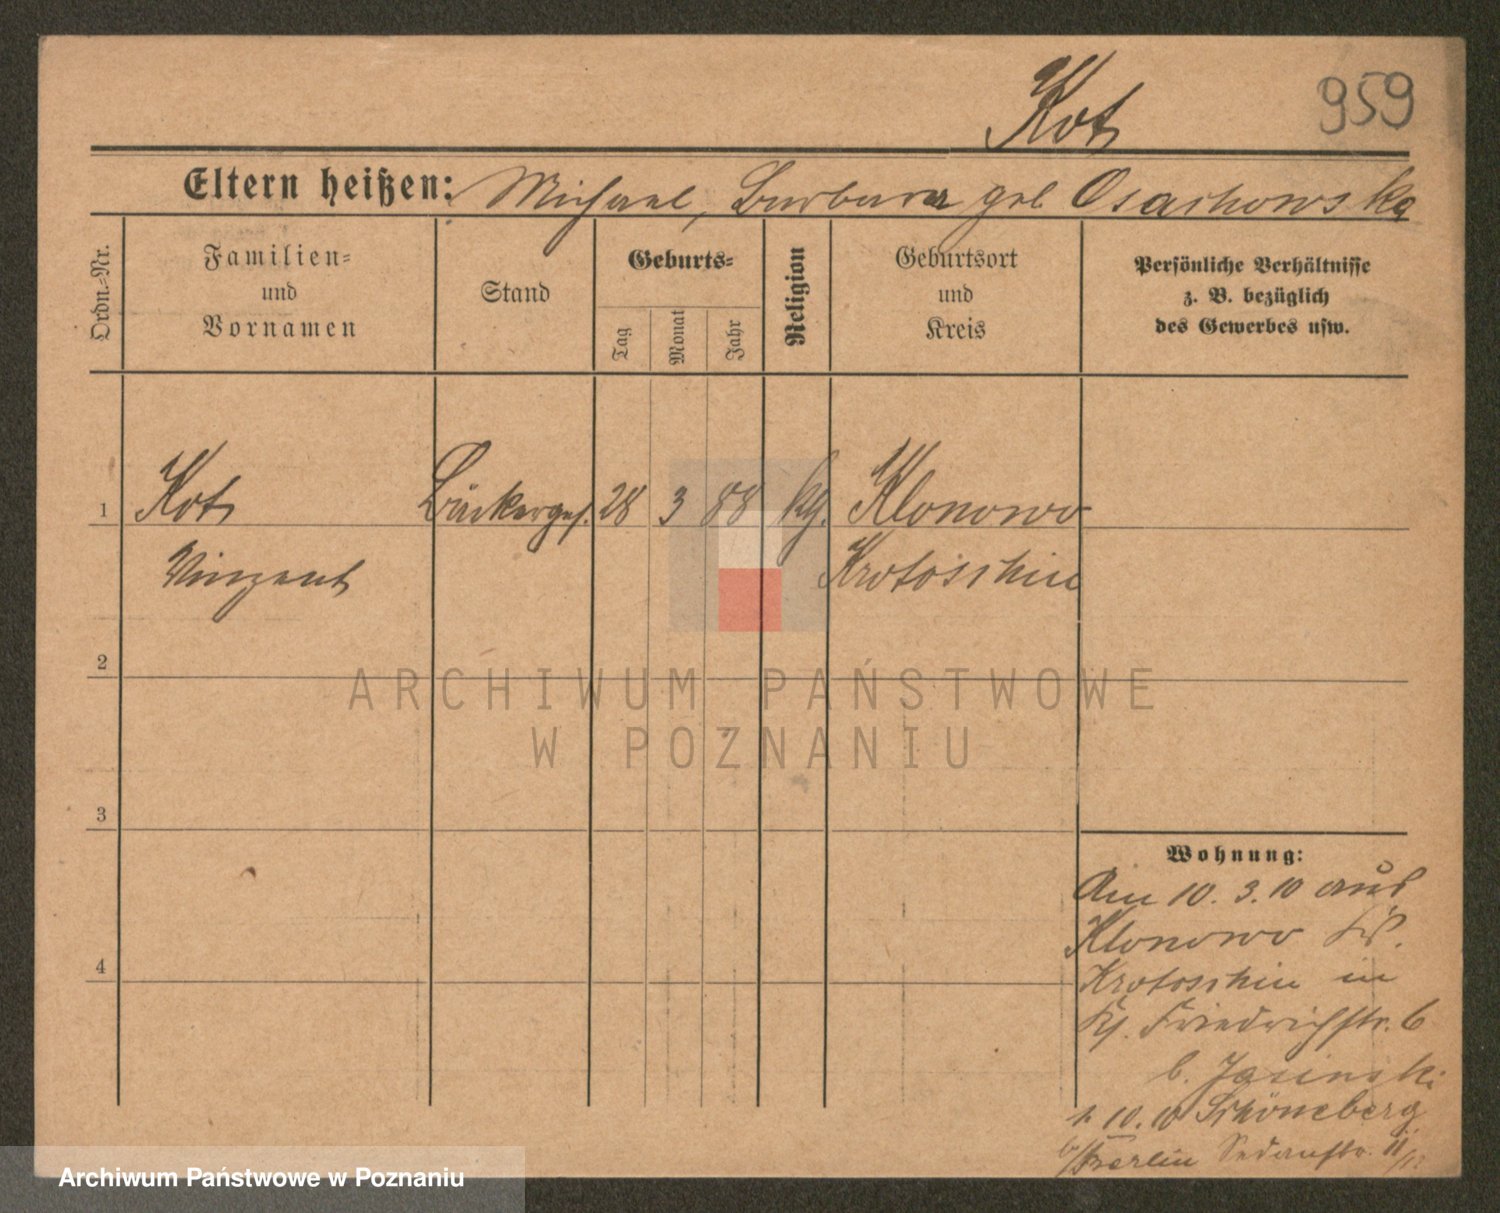 Kot
959
Eltern heißen: Michael, Barbara geb Osachowska
Ordn.-Nr.
Familien-
und
Vornamen
Stand
Geburts-
Tag
Monat
Jahr
Religion
Geburtsort
und
Kreis
Persönliche Verhältnisse
z. B. bezüglich
des Gewerbes usw.
1 Kot Bäckerges. 28 3 88 kg. Klonowo
Vinzent Krotoschin
2
3
4
Wohnung:
Am 10. 3. 10 aus
Klonowo
Krotoschin in
Friedrichstr. 6
b. Jasinski
1. 10. 10 Schöneberg
b/Berlin Sedanstr. 11
ARCHIWUM PAŃSTWOWE
W POZNANIU
Archiwum Państwowe w Poznaniu